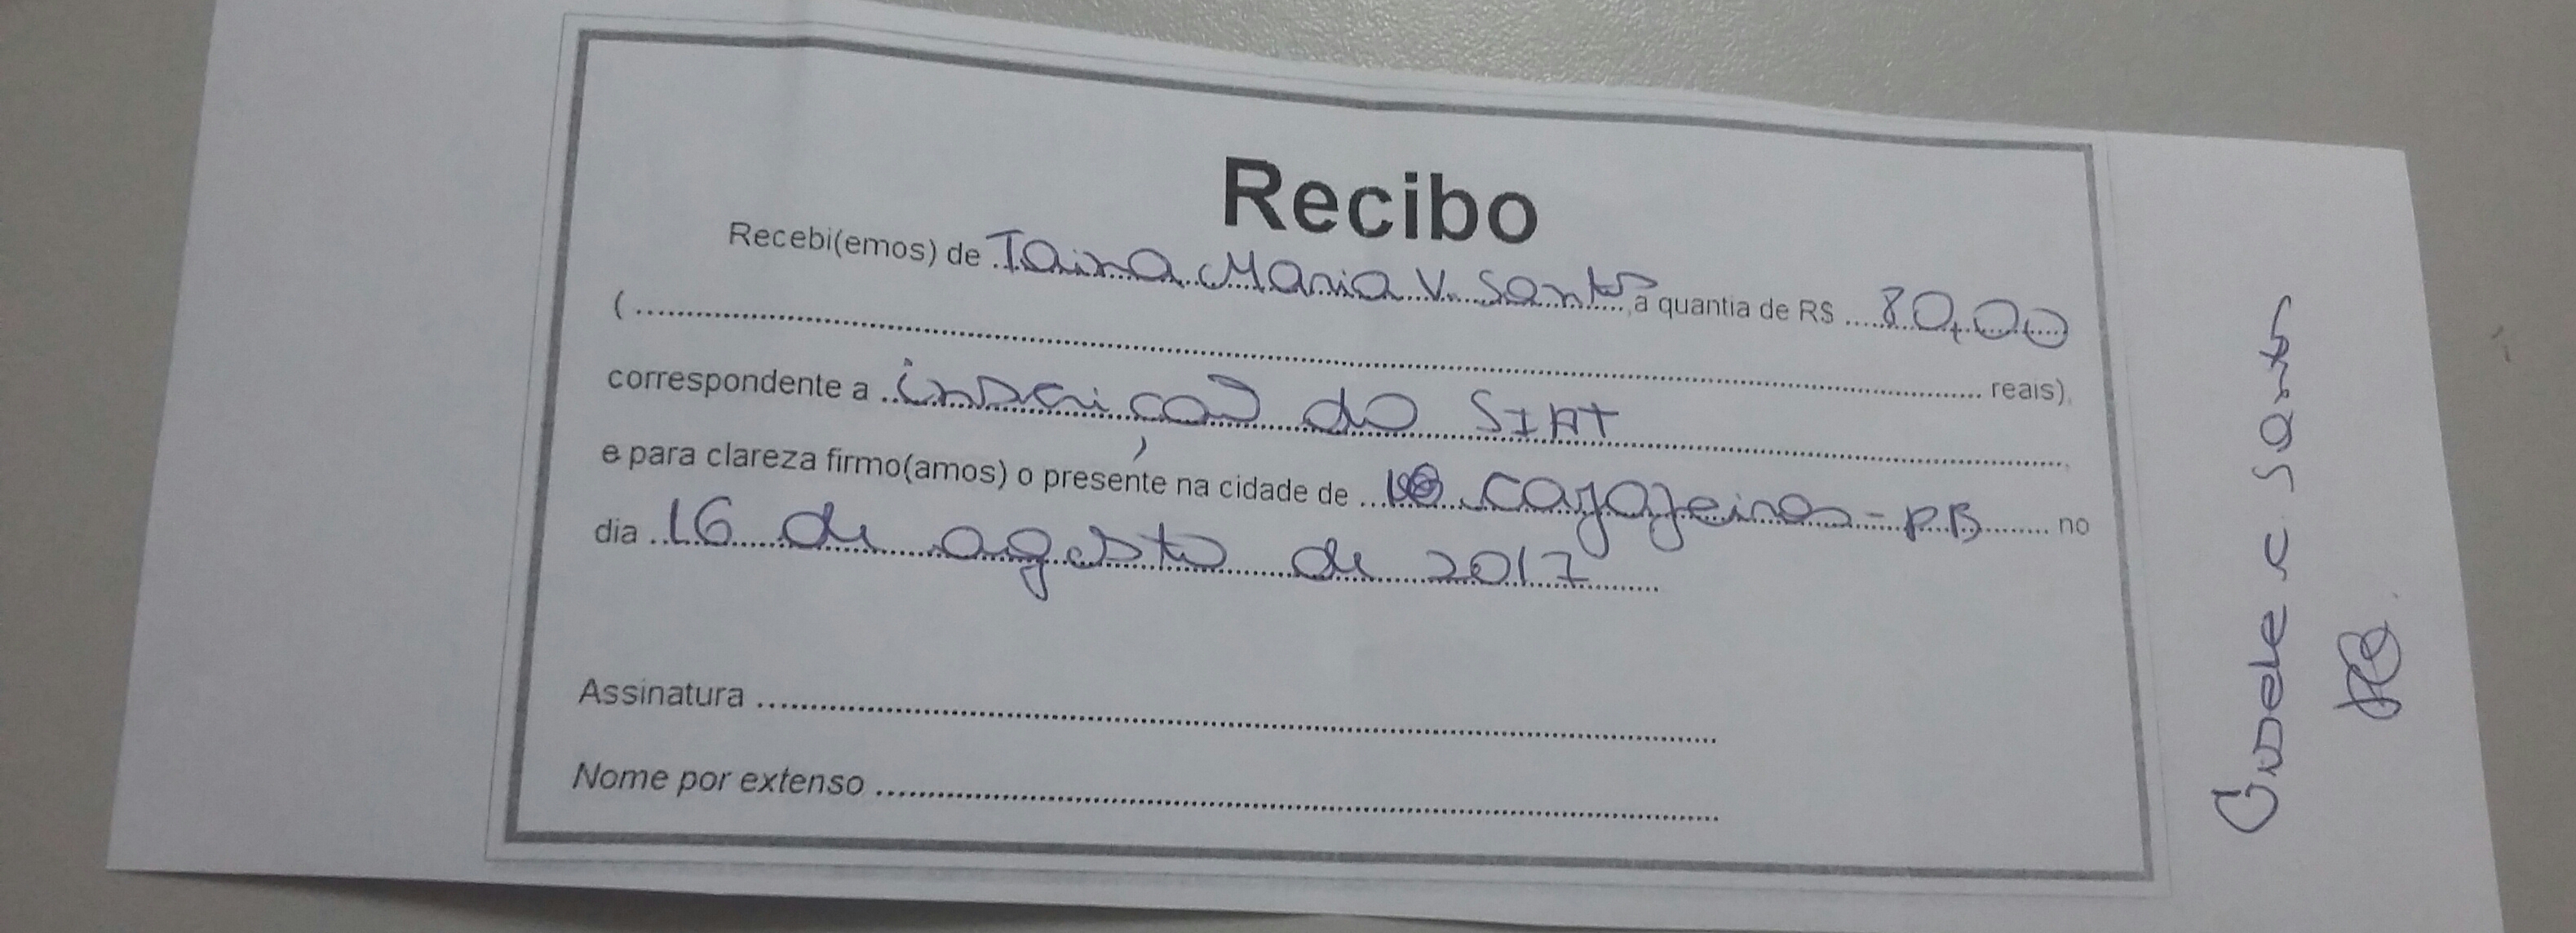 Recibo
Recebi(emos) de Taina Maria V. Santos, a quantia de R$ 80,00
(.......... reais),
correspondente a inscrição do SIAT
e para clareza firmo(amos) o presente na cidade de Cajazeiras-PB no
dia 16 de agosto de 2017
Assinatura
Nome por extenso
Gisele e Santos